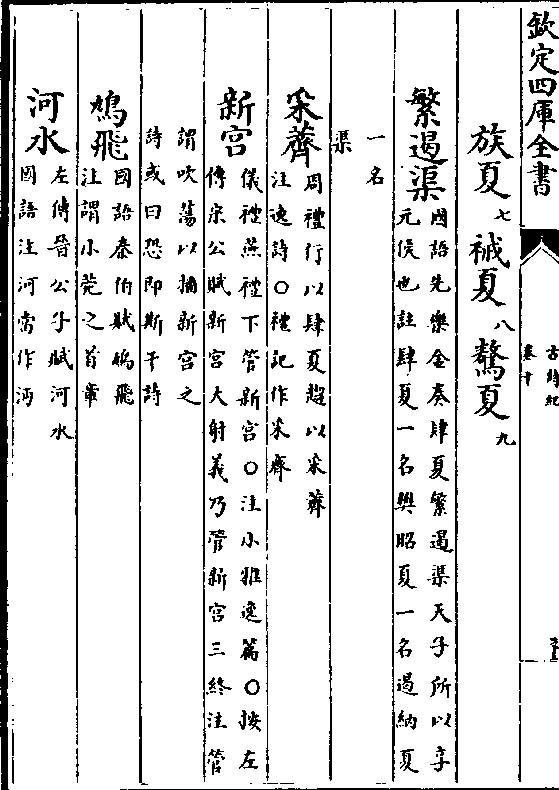 欽定四庫全書
古詩紀
卷十
族夏七 祴夏八 驁夏九
繁遏渠
國語先樂金奏肆夏繁遏渠天子所以享
元侯也註肆夏一名樊昭夏一名遏納夏
一名
渠
采薺
周禮行以肆夏趨以采薺
注逸詩○禮記作采齊
新宫
儀禮燕禮下管新宫○注小雅逸篇○按左
傳宋公賦新宫大射義乃管新宫三終注管
謂吹蕩以播新宫之
詩或曰恐即斯干詩
鳩飛
國語秦伯賦鳩飛
注謂小菀之首章
河水
左傳晉公子賦河水
國語注河當作沔